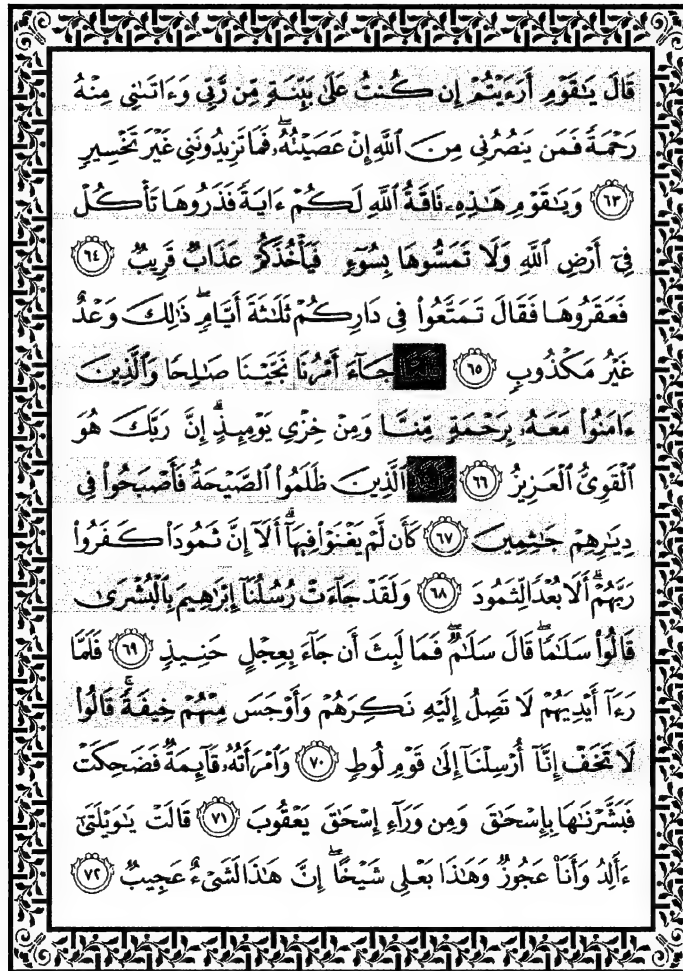 قَالَ يَٰقَوْمِ أَرَءَيْتُمْ إِن كُنتُ عَلَىٰ بَيِّنَةٍ مِّن رَّبِّى وَءَاتَىٰنِى مِنْهُ
رَحْمَةً فَمَن يَنصُرُنِى مِنَ ٱللَّهِ إِنْ عَصَيْتُهُۥ ۖ فَمَا تَزِيدُونَنِى غَيْرَ تَخْسِيرٍ
﴿٦٣﴾ وَيَٰقَوْمِ هَٰذِهِۦ نَاقَةُ ٱللَّهِ لَكُمْ ءَايَةً فَذَرُوهَا تَأْكُلْ
فِىٓ أَرْضِ ٱللَّهِ وَلَا تَمَسُّوهَا بِسُوٓءٍ فَيَأْخُذَكُمْ عَذَابٌ قَرِيبٌ ﴿٦٤﴾
فَعَقَرُوهَا فَقَالَ تَمَتَّعُوا۟ فِى دَارِكُمْ ثَلَٰثَةَ أَيَّامٍ ۖ ذَٰلِكَ وَعْدٌ
غَيْرُ مَكْذُوبٍ ﴿٦٥﴾ فَلَمَّا جَآءَ أَمْرُنَا نَجَّيْنَا صَٰلِحًا وَٱلَّذِينَ
ءَامَنُوا۟ مَعَهُۥ بِرَحْمَةٍ مِّنَّا وَمِنْ خِزْىِ يَوْمِئِذٍ ۗ إِنَّ رَبَّكَ هُوَ
ٱلْقَوِىُّ ٱلْعَزِيزُ ﴿٦٦﴾ ٱلَّذِينَ ظَلَمُوا۟ ٱلصَّيْحَةُ فَأَصْبَحُوا۟ فِى
دِيَٰرِهِمْ جَٰثِمِينَ ﴿٦٧﴾ كَأَن لَّمْ يَغْنَوْا۟ فِيهَآ ۗ أَلَآ إِنَّ ثَمُودَا۟ كَفَرُوا۟
رَبَّهُمْ ۗ أَلَا بُعْدًا لِّثَمُودَ ﴿٦٨﴾ وَلَقَدْ جَآءَتْ رُسُلُنَآ إِبْرَٰهِيمَ بِٱلْبُشْرَىٰ
قَالُوا۟ سَلَٰمًا ۖ قَالَ سَلَٰمٌ ۖ فَمَا لَبِثَ أَن جَآءَ بِعِجْلٍ حَنِيذٍ ﴿٦٩﴾ فَلَمَّا
رَءَآ أَيْدِيَهُمْ لَا تَصِلُ إِلَيْهِ نَكِرَهُمْ وَأَوْجَسَ مِنْهُمْ خِيفَةً ۚ قَالُوا۟
لَا تَخَفْ إِنَّآ أُرْسِلْنَآ إِلَىٰ قَوْمِ لُوطٍ ﴿٧٠﴾ وَٱمْرَأَتُهُۥ قَآئِمَةٌ فَضَحِكَتْ
فَبَشَّرْنَٰهَا بِإِسْحَٰقَ وَمِن وَرَآءِ إِسْحَٰقَ يَعْقُوبَ ﴿٧١﴾ قَالَتْ يَٰوَيْلَتَىٰٓ
ءَأَلِدُ وَأَنَا۠ عَجُوزٌ وَهَٰذَا بَعْلِى شَيْخًا ۖ إِنَّ هَٰذَا لَشَىْءٌ عَجِيبٌ ﴿٧٢﴾